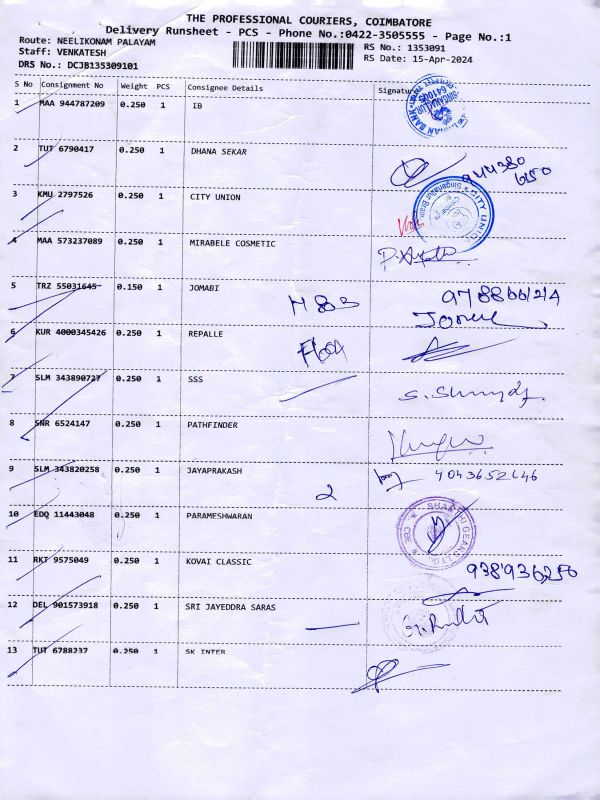 THE PROFESSIONAL COURIERS, COIMBATORE
Delivery Runsheet - PCS - Phone No.:0422-3505555 - Page No.:1
Route: NEELIKONAM PALAYAM
RS No.: 1353091
Staff: VENKATESH
RS Date: 15-Apr-2024
DRS No.: DCJB135309101
S No Consignment No Weight PCS Consignee Details Signature
1 MAA 944787209 0.250 1 IB
2 TUT 6790417 0.250 1 DHANA SEKAR
3 KMU 2797526 0.250 1 CITY UNION
CITY UNION
4 MAA 573237089 0.250 1 MIRABELE COSMETIC
5 TRZ 55031645 0.150 1 JOMABI
6 KUR 4000345426 0.250 1 REPALLE
7 SLM 343890727 0.250 1 SSS
8 SNR 6524147 0.250 1 PATHFINDER
9 SLM 343820258 0.250 1 JAYAPRAKASH
2
10 EDQ 11443048 0.250 1 PARAMESHWARAN
11 RKT 9575049 0.250 1 KOVAI CLASSIC
12 DEL 901573918 0.250 1 SRI JAYEDDRA SARAS
13 TUT 6788237 0.250 1 SK INTER